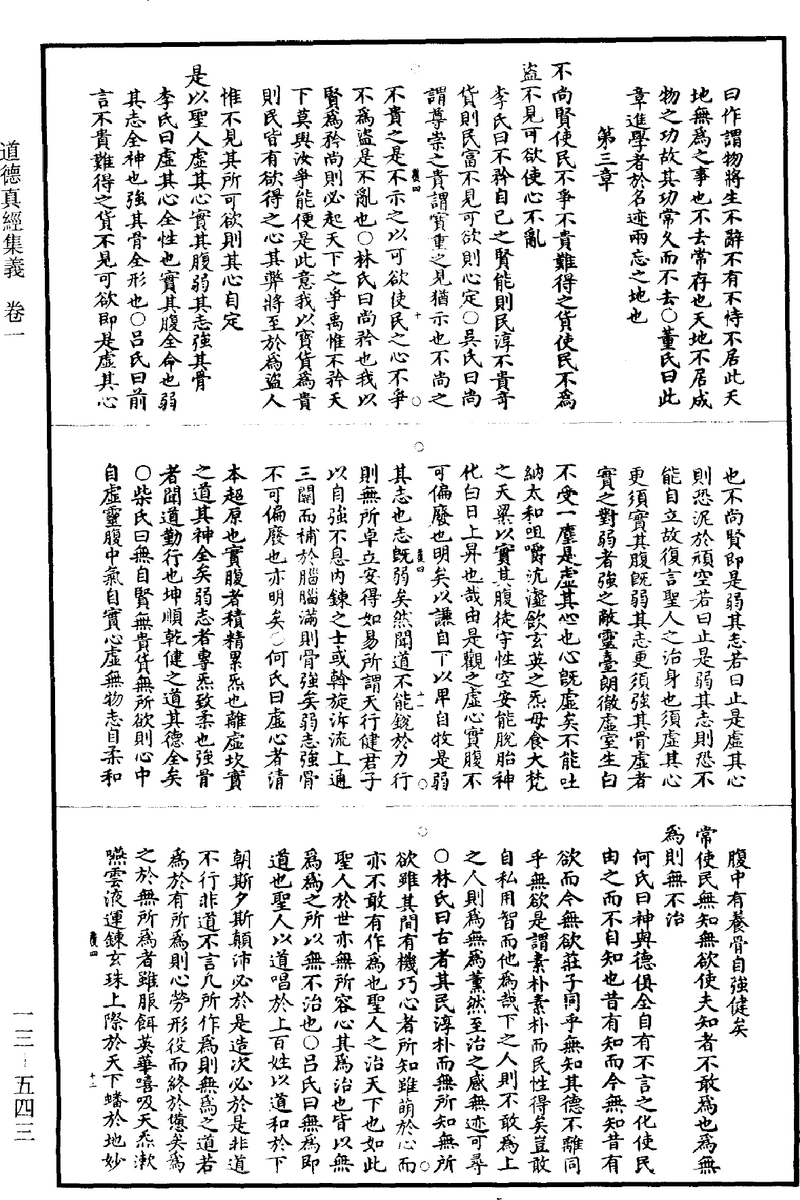 道德真經集義　卷一
一三－五四三
曰作謂物將生不辭不有不恃不居此天
地無為之事也不去常存也天地不居成
物之功故其功常久而不去○董氏曰此
章進學者於名迹兩忘之地也
第三章
不尚賢使民不爭不貴難得之貨使民不為
盜不見可欲使心不亂
李氏曰不矜自己之賢能則民淳不貴奇
貨則民富不見可欲則心定○吳氏曰尚
謂尊崇之貴謂寶重之見猶示也不尚之
不貴之是不示之以可欲使民之心不爭
不為盜是不亂也○林氏曰尚矜也我以
賢為矜尚則必起天下之爭禹惟不矜天
下莫與汝爭能便是此意我以寶貨為貴
則民皆有欲得之心其弊將至於為盜人
惟不見其所可欲則其心自定
是以聖人虛其心實其腹弱其志強其骨
李氏曰虛其心全性也實其腹全命也弱
其志全神也強其骨全形也○呂氏曰前
言不貴難得之貨不見可欲即是虛其心
也不尚賢即是弱其志若曰止是虛其心
則恐泥於頑空若曰止是弱其志則恐不
能自立故復言聖人之治身也須虛其心
更須實其腹既弱其志更須強其骨虛者
實之對弱者強之敵靈臺朗徹虛室生白
不受一塵是虛其心也心既虛矣不能吐
納太和咀嚼沆瀣飲玄英之炁毋食大梵
之天粱以實其腹徒守性空安能脫胎神
化白日上昇也哉由是觀之虛心實腹不
可偏廢也明矣以謙自下以卑自牧是弱
其志也志既弱矣然聞道不能銳於力行
則無所卓立安得如易所謂天行健君子
以自強不息內鍊之士或斡旋泝流上通
三關而補於腦腦滿則骨強矣弱志強骨
不可偏廢也亦明矣○何氏曰虛心者清
本超原也實腹者積精累炁也離虛坎實
之道其神全矣弱志者專炁致柔也強骨
者聞道勤行也坤順乾健之道其德全矣
○柴氏曰無自賢無貴貨無所欲則心中
自虛靈腹中氣自實心虛無物志自柔和
腹中有養骨自強健矣
常使民無知無欲使夫知者不敢為也為無
為則無不治
何氏曰神與德俱全自有不言之化使民
由之而不自知也昔有知而今無知昔有
欲而今無欲莊子同乎無知其德不離同
乎無欲是謂素朴素朴而民性得矣豈敢
自私用智而他為哉下之人則不敢為上
之人則為無為薰然至治之感無迹可尋
○林氏曰古者其民淳朴而無所知無所
欲雖其間有機巧心者所知雖萌於心而
亦不敢有作為也聖人之治天下也如此
聖人於世亦無所容心其為治也皆以無
為為之所以無不治也○呂氏曰無為即
道也聖人以道唱於上百姓以道和於下
朝斯夕斯顛沛必於是造次必於是非道
不行非道不言凡所作為則無為之道若
為於有所為則心勞形役而終於憊矣為
之於無所為者雖服餌英華嘻吸天炁漱
嚥雲液運鍊玄珠上際於天下蟠於地妙